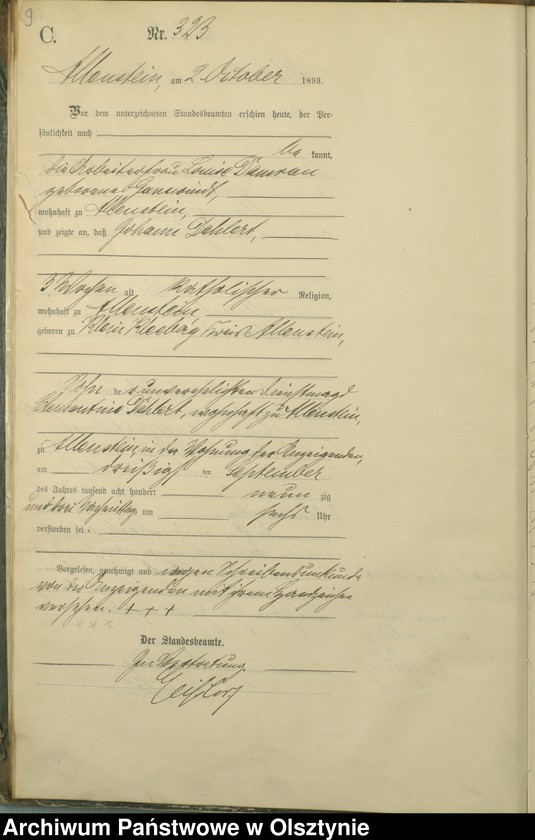 9
C.
Nr. 323
Allenstein, am 2. October 1893.
Vor dem unterzeichneten Standesbeamten erschien heute, der Per-
sönlichkeit nach
be kannt,
die Arbeiterfrau Louise
geborene
wohnhaft zu Allenstein,
und zeigte an, daß Johann Dehlert,
3 Wochen alt katholischer Religion,
wohnhaft zu Allenstein
geboren zu Klein Kleeberg Kreis Allenstein,
Sohn der unverehelichten Dienstmagd
Clementine Dehlert, wohnhaft zu Allenstein,
zu Allenstein, in der Wohnung der Anzeigenden,
am dreißigsten September
des Jahres tausend acht hundert neun zig
und drei Nachmittags um sechs Uhr
verstorben sei.
Vorgelesen, genehmigt und wegen Schreibensunkunde
von der Anzeigenden mit ihrem Handzeichen
versehen. + + +
x x x
Der Standesbeamte.
In Vertretung.
Archiwum Państwowe w Olsztynie